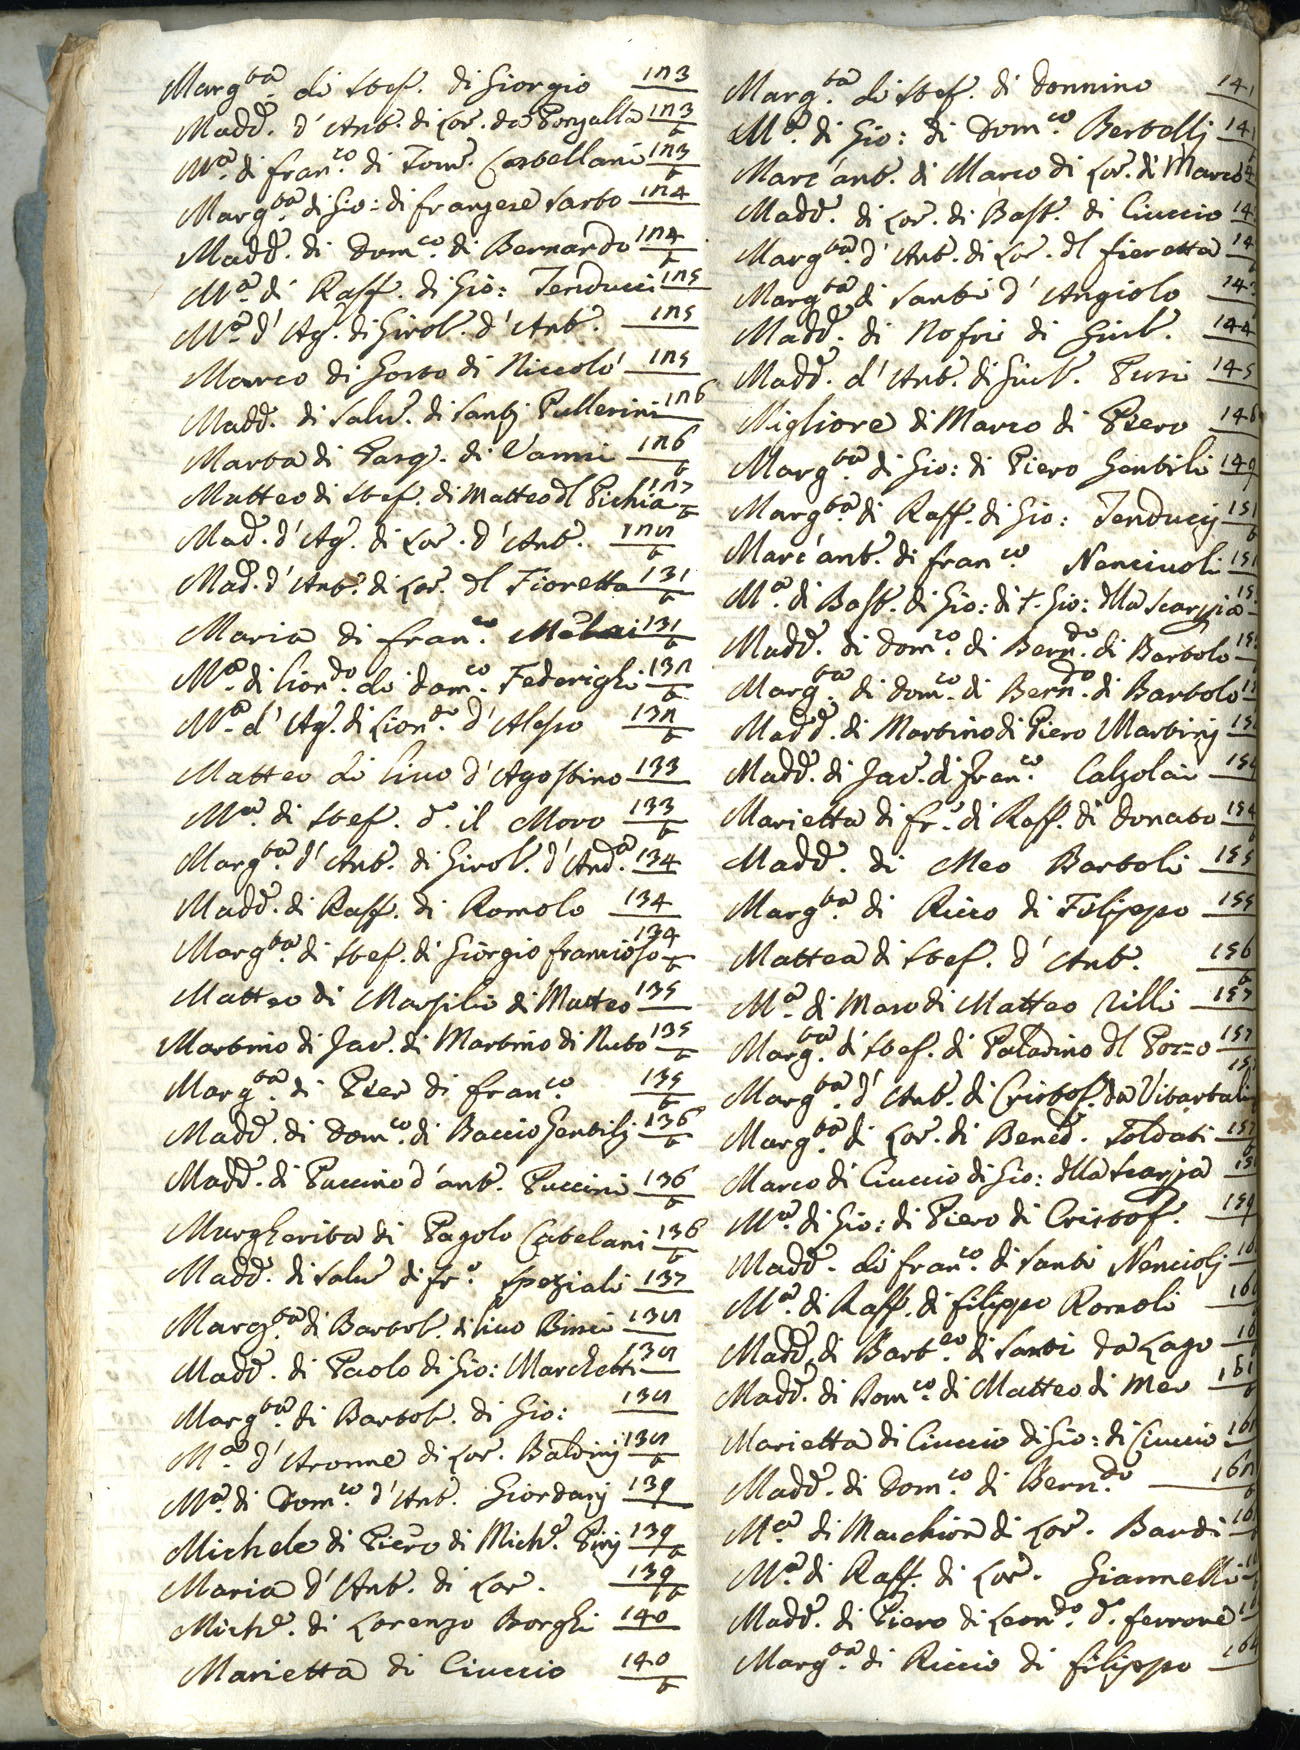 Marg.ta di Stef. di Giorgio 123
Madd. d'Ant. di Lor. da Ponzalla 123 t
M.a di Fran.co di Tom. Castellani 123 t
Marg.ta di Gio: di Franzese Sarto 124
Madd. di Dom.co di Bernardo 124 t
M.a di Raff. di Gio: Tenducci 125
M.a d'Ag. di Girol. d'Ant. 125
Marco di Santo di Niccolò 125
Madd. di Salv. di Santj Pullerini 126
Marta di Pasq. di Vanni 126 t
Matteo di Stef. di Matteo dl Pichia 127 t
Mad. d'Ag. di Lor. d'Ant. 128 t
Mad. d'Ant. di Lor. dl Fioretta 131 t
Maria di Fran.co 131 t
M.a di Lion.do di Dom.co Federighi 132 t
M.a d'Ag. di Lion.do d'Alesso 132 t
Matteo di Lino d'Agostino 133
M.a di Stef. d.o il Moro 133 t
Marg.ta d'Ant. di Girol. d'And.a 134
Madd. di Raff. di Romolo 134
Marg.ta di Stef. di Giorgio Francioso 134 t
Matteo di Marsilio di Matteo 135
Martino di Jac. di Martino di Nuto 135 t
Marg.ta di Pier di Fran.co 135 t
Madd. di Dom.co di Baccio Gentilj 136 t
Madd. di Puccino d'Ant. Puccini 136 t
Margherita di Pagolo Catelani 136 t
Madd. di Salv. di Fr.o Speziali 137
Marg.ta di Bartol. di Lino Binni 138
Madd. di Paolo di Gio: Marchetti 138
Marg.ta di Bartol. di Gio: 138
M.a d'Aronne di Lor. Baldinj 138 t
M.a di Dom.co d'Ant. Giordanj 139
Michele di Piero di Mich.e Pinj 139 t
Maria d'Ant. di Lor. 139 t
Mich.e di Lorenzo Borghi 140
Marietta di Ciuccio 140 t
Marg.ta di Stef. di Donnino 141
M.a di Gio: di Dom.co Bertellj 141
Marc'Ant. di Marco di Lor. di Marco
Madd. di Lor. di Bast. di Ciuccio 14
Marg.ta d'Ant. di Lor. dl Fieretta 14
Marg.ta di Santi d'Angiolo 14
Madd. di Nofri di Giul. 144
Madd. d'Ant. di Giul. Puri 145
Migliore di Marco di Piero 146
Marg.ta di Gio: di Piero Gentili 149
Marg.ta di Raff. di Gio: Tenducij 151
Marc'Ant. di Fran.co Nencivoli 151
M.a di Bast. di Gio: di F. Gio: dlla Scarpia 15
Madd. di Dom.co di Bern.do di Bartolo 15
Marg.ta di Dom.co di Bern.do di Bartolo
Madd. di Martino di Piero Martinij 15
Madd. di Jac. di Fran.co Calzolai 154
Marietta di Fr.o di Raff. di Donato 154
Madd. di Meo Bartoli 155
Marg.ta di Ricco di Filippo 155
Mattea di Stef. d'Ant. 156 t
M.a di Maso di Matteo Lilli 157
Marg.ta di Stef. di Paladino dl Pozzo 157
Marg.ta d'Ant. di Cristof. da Vitartali 157
Marg.ta di Lor. di Bened. Soldati 157
Marco di Ciuccio di Gio: dlla Scarpia 15
M.a di Gio: di Piero di Cristof. 159
Madd. di Fran.co di Santi Nenciolj
M.a di Raff. di Filippo Romoli 160
Madd. di Bart.eo di Santi da Lago 16
Madd. di Dom.co di Matteo di Meo 161 t
Marietta di Ciuccio di Gio: di Ciuccio 161
Madd. di Dom.co di Bern.do 162 t
M.a di Marchion di Lor. Bandi 16
M.a di Raff. di Lor. Giannelli
Madd. di Piero di Leon.do d.o Ferrone
Marg.ta di Riccio di Filippo 164